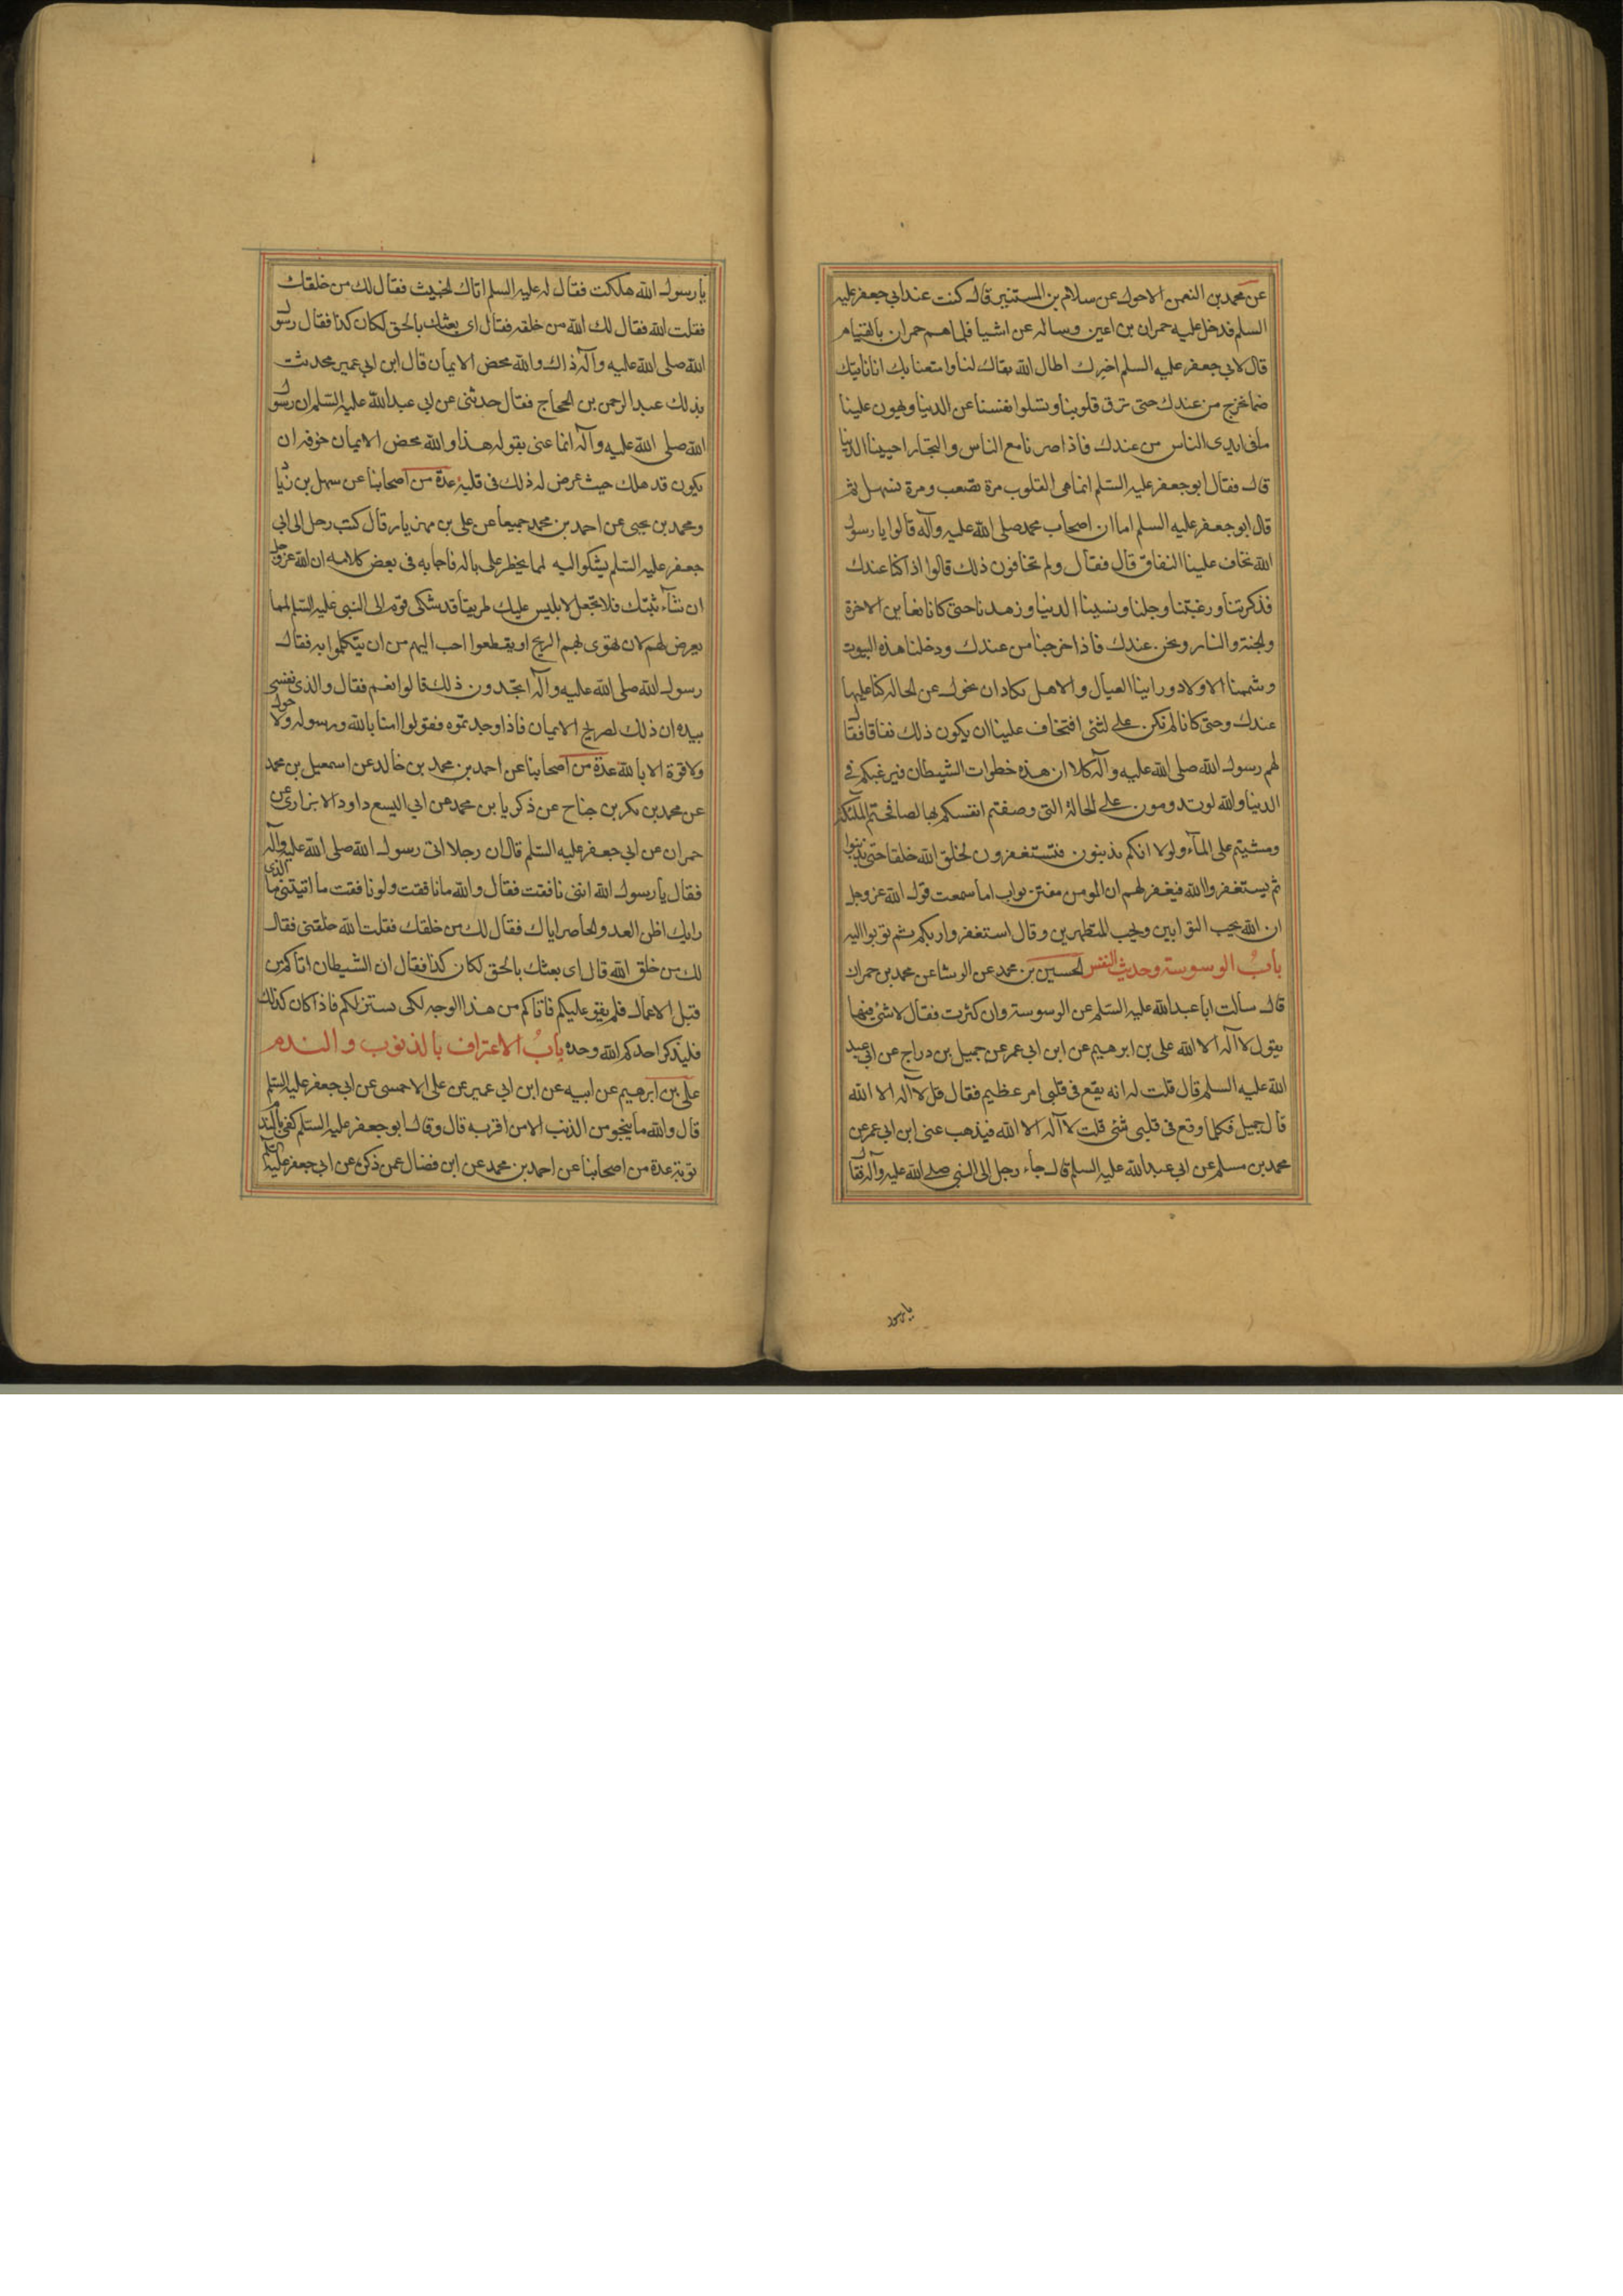 عن محمد بن النعمن الاحول عن سلام بن المستنير قال كنت عند ابي جعفر عليه
السلم فدخل عليه حمران بن اعين وساله عن اشيا فلما هم حمران بالقيام
قال لابي جعفر عليه السلم اخبرك اطال الله بقاك لنا وامتعنا بك انا ناتيك
فما نخرج من عندك حتى ترق قلوبنا وتسلوا نفسنا عن الدنيا ويهون علينا
ما في ايدي الناس من عندك فاذا صرنا مع الناس والتجار احببنا الدنيا
قال فقال ابو جعفر عليه السلم انما هي القلوب مرة تصعب ومرة تسهل ثم
قال ابو جعفر عليه السلم اما ان اصحاب محمد صلى الله عليه وآله قالوا يا رسول
الله نخاف علينا النفاق قال فقال ولم تخافون ذلك قالوا اذا كنا عندك
فذكرتنا ورغبتنا وجلنا ونسينا الدنيا وزهدنا حتى كانا نعاين الاخرة
والجنة والنار ونحن عندك فاذا خرجنا من عندك ودخلنا هذه البيوت
وشممنا الاولاد وراينا العيال والاهل يكاد ان نحول عن الحاله كنا عليها
عندك وحتى كانا لم نكن على شئ افتخاف علينا ان يكون ذلك نفاقا فقال
لهم رسول الله صلى الله عليه وآله كلا ان هذه خطوات الشيطان فيرغبكم في
الدنيا والله لو تدومون على الحالة التي وصفتم انفسكم بها لصافحتم الملئكة
ومشيتم على المآء ولولا انكم تذنبون فتستغفرون لخلق الله خلقا حتى يذنبوا
ثم يستغفروا الله فيغفر لهم ان المومن مفتن تواب اما سمعت قول الله عز وجل
ان الله يحب التوابين ويحب المتطهرين وقال استغفروا ربكم ثم توبوا اليه
باب الوسوسة وحديث النفس الحسين بن محمد عن الوشا عن محمد بن حمران
قال سألت ابا عبد الله عليه السلم عن الوسوسة وان كثرت فقال لا شئ فيها
يقول لا آله الا الله علي بن ابرهيم عن ابن ابي عمر عن جميل بن دراج عن ابي عبد
الله عليه السلم قال قلت له انه يقع في قلبي امر عظيم فقال قل لا آله الا الله
قال جميل فكلما وقع في قلبي شئ قلت لا آله الا الله فيذهب عني ابن ابي عمر عن
محمد بن مسلم عن ابي عبد الله عليه السلم قال جاء رجل الى النبي صلى الله عليه وآله فقال
يا رسول
يا رسول الله هلكت فقال له عليه السلم اتاك الخبيث فقال لك من خلقك
فقلت الله فقال لك الله من خلقه فقال اي بعثك بالحق لكان كذا فقال رسول
الله صلى الله عليه وآله ذاك والله محض الايمان قال ابن ابي عمير فحدثت
بذلك عبد الرحمن بن الحجاج فقال حدثني عن ابي عبد الله عليه السلم ان رسول
الله صلى الله عليه وآله انما عنى بقوله هذا والله محض الايمان خوفه ان
يكون قد هلك حيث عرض له ذلك في قلبه عدة من اصحابنا عن سهل بن زياد
ومحمد بن يحيى عن احمد بن محمد جميعا عن علي بن مهزيار قال كتب رجل الى ابي
جعفر عليه السلم يشكوا اليه لما يخطر على باله فاجابه في بعض كلامه ان الله عز وجل
ان شآء ثبتك فلا تجعل لابليس عليك طريقا قد شكى قوم الى النبي عليه السلم لمما
يعرض لهم لان تهوى بهم الريح او يقطعوا احب اليهم من ان يتكلموا به فقال
رسول الله صلى الله عليه وآله اتجدون ذلك قالوا نعم فقال والذي نفسي
بيده ان ذلك لصريح الايمان فاذا وجدتموه فقولوا امنا بالله ورسوله ولا حول
ولا قوة الا بالله عدة من اصحابنا عن احمد بن محمد بن خالد عن اسمعيل بن محمد
عن محمد بن بكر بن جناح عن ذكريا بن محمد عن ابي اليسع داود الابزاري عن
حمران عن ابي جعفر عليه السلم قال ان رجلا اتى رسول الله صلى الله عليه وآله
فقال يا رسول الله انني نافقت فقال والله ما نافقت ولو نافقت ما اتيتني ما الذي
رابك اظن العدو الحاضر اتاك فقال لك من خلقك فقلت الله خلقني فقال
لك من خلق الله قال اي بعثك بالحق لكان كذا فقال ان الشيطان اتاكم من
قبل الاعمال فلم يقو عليكم فاتاكم من هذا الوجه لكي يستزلكم فاذا كان كذلك
فليذكر احدكم الله وحده باب الاعتراف بالذنوب والندم
علي بن ابرهيم عن ابيه عن ابن ابي عمير عن علي الاحمسي عن ابي جعفر عليه السلم
قال والله ما ينجو من الذنب الا من اقر به قال وقال ابو جعفر عليه السلم كفى بالندم
توبة عدة من اصحابنا عن احمد بن محمد عن ابن فضال عمن ذكره عن ابي جعفر عليه السلم